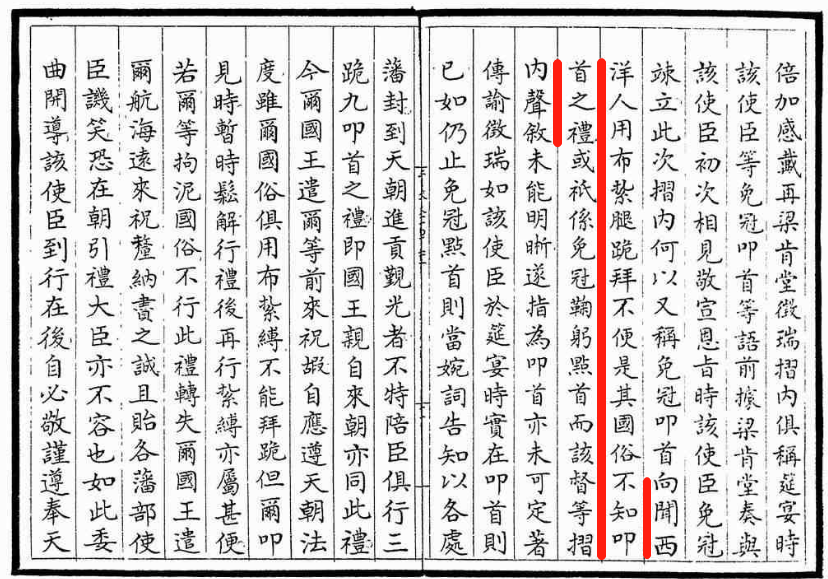 倍加感戴再梁肯堂徵瑞摺內俱稱筵宴時
該使臣等免冠叩首等語前據梁肯堂奏與
該使臣初次相見敬宣恩旨時該使臣免冠
竦立此次摺內何以又稱免冠叩首向聞西
洋人用布紮腿跪拜不便是其國俗不知叩
首之禮或祇係免冠鞠躬點首而該督等摺
內聲敘未能明晰遂指為叩首亦未可定著
傳諭徵瑞如該使臣於筵宴時實在叩首則
已如仍止免冠點首則當婉詞告知以各處
藩封到天朝進貢覲光者不特陪臣俱行三
跪九叩首之禮即國王親自來朝亦同此禮
今爾國王遣爾等前來祝嘏自應遵天朝法
度雖爾國俗俱用布紮縛不能拜跪但爾叩
見時暫時鬆解行禮後再行紮縛亦屬甚便
若爾等拘泥國俗不行此禮轉失爾國王遣
爾航海遠來祝釐納贄之誠且貽各藩部使
臣譏笑恐在朝引禮大臣亦不容也如此委
曲開導該使臣到行在後自必敬謹遵奉天